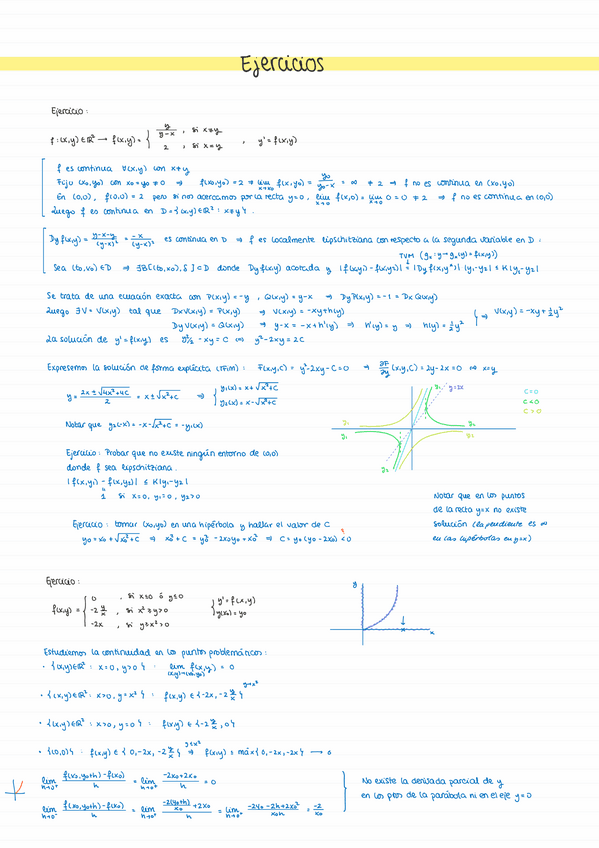 Ejercicios
Ejercicio:
f: (x,y) ∈ ℝ² → f(x,y) = { y/(y-x) , si x≠y ; 2 , si x=y , y' = f(x,y)
f es continua ∀(x,y) con x≠y
Fijo (x₀,y₀) con x₀=y₀ ≠ 0 ⇒ f(x₀,y₀) = 2 ≠ lim x→x₀ f(x,y₀) = y₀/(y₀-x) = ∞ ≠ 2 ⇒ f no es continua en (x₀,y₀)
En (0,0), f(0,0) = 2 pero si nos acercamos por la recta y=0, lim x→0 f(x,0) = lim x→0 0 = 0 ≠ 2 ⇒ f no es continua en (0,0)
Luego f es continua en D = {(x,y) ∈ ℝ² : x≠y}.
Dyf(x,y) = (y-x-y)/(y-x)² = -x/(y-x)² es continua en D ⇒ f es localmente lipschitziana con respecto a la segunda variable en D:
TVM (gₓ: y → gₓ(y) = f(x,y))
Sea (t₀,x₀) ∈ D ⇒ ∃B[(t₀,x₀), δ] ⊂ D donde Dyf(x,y) acotada y |f(x,y₁) - f(x,y₂)| = |Dyf(x,y*)| |y₁-y₂| ≤ K|y₁-y₂|
Se trata de una ecuación exacta con P(x,y) = -y , Q(x,y) = y-x ⇒ DyP(x,y) = -1 = DxQ(x,y)
Luego ∃V = V(x,y) tal que DxV(x,y) = P(x,y) ⇒ V(x,y) = -xy + h(y)
DyV(x,y) = Q(x,y) ⇒ y-x = -x + h'(y) ⇒ h'(y) = y ⇒ h(y) = ½y² } ⇒ V(x,y) = -xy + ½y²
La solución de y' = f(x,y) es y²/2 - xy = C ⇔ y² - 2xy = 2C
Expresemos la solución de forma explícita (TFIm): F(x,y,C) = y² - 2xy - C = 0 → ∂F/∂y (x,y,C) = 2y - 2x = 0 ⇔ x=y
y = (2x ± √(4x²+4C))/2 = x ± √(x²+C) ⇒ { y₁(x) = x + √(x²+C)
y₂(x) = x - √(x²+C)
Notar que y₂(-x) = -x - √(x²+C) = -y₁(x)
y₁
y₁
y₂
y₂
y=2x
C=0
C<0
C>0
Ejercicio: Probar que no existe ningún entorno de (0,0)
donde f sea lipschitziana.
|f(x,y₁) - f(x,y₂)| ≤ K|y₁-y₂|
1 si x=0, y₁=0, y₂>0
Notar que en los puntos
de la recta y=x no existe
solución (la pendiente es ∞
en las hipérbolas en y=x)
Ejercicio: tomar (x₀,y₀) en una hipérbola y hallar el valor de C
y₀ = x₀ + √(x₀²+C) ⇒ x₀² + C = y₀² - 2x₀y₀ + x₀² ⇒ C = y₀(y₀-2x₀) < 0
Ejercicio:
f(x,y) = { 0 , si x≤0 ó y≤0 ; -2 y/x , si x² ≥ y > 0 ; -2x , si y ≥ x² > 0 { y' = f(x,y) ; y(x₀) = y₀
y
x
Estudiemos la continuidad en los puntos problemáticos:
· {(x,y) ∈ ℝ² : x=0, y>0} : lim (x,y)→(x₀,y₀) f(x,y) = 0
· {(x,y) ∈ ℝ² : x>0, y=x²} : f(x,y) ∈ {-2x, -2 y/x} y→x²
· {(x,y) ∈ ℝ² : x>0, y=0} : f(x,y) ∈ {-2 y/x, 0}
· {(0,0)} : f(x,y) ∈ {0, -2x, -2 y/x} y≤x² ⇒ f(x,y) ≤ máx{0, -2x, -2x} → 0
lim h→0⁺ (f(x₀,y₀+h) - f(x₀))/h = lim h→0⁺ (-2x₀+2x₀)/h = 0
lim h→0⁻ (f(x₀,y₀+h) - f(x₀))/h = lim h→0⁻ (-2(y₀+h)/x₀ + 2x₀)/h = lim h→0⁻ (-2y₀-2h+2x₀²)/(x₀h) = -2/x₀
No existe la derivada parcial de y
en los ptos de la parábola ni en el eje y=0